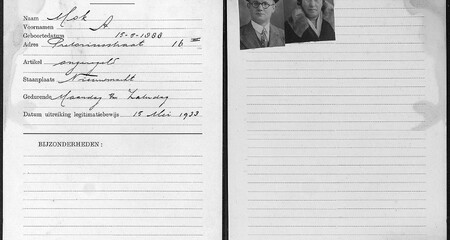 Naam Mok
Voornamen A
Geboortedatum 15-8-1888
Adres 16 III
Artikel ongeregeld
Staanplaats Nieuwmarkt
Gedurende Maandag Zaterdag
Datum uitreiking legitimatiebewijs 18 Mei 1933
BIJZONDERHEDEN: